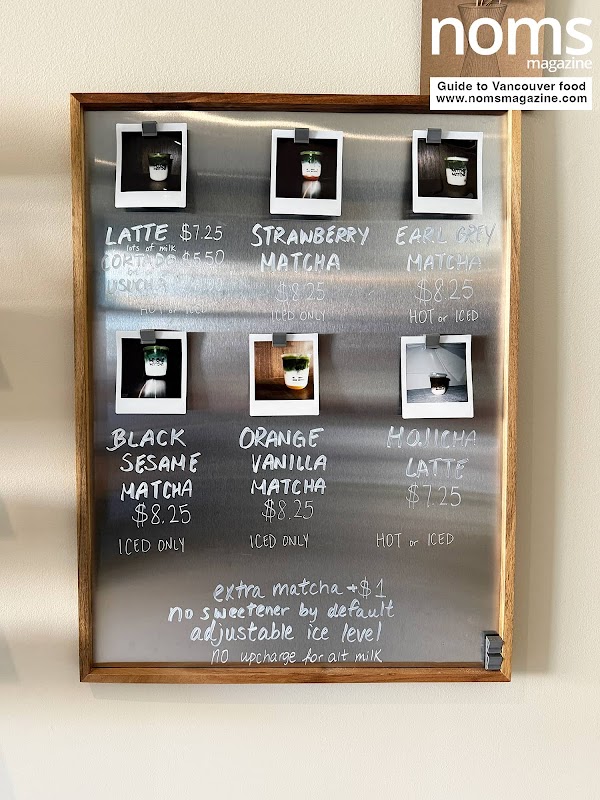 noms
magazine
Guide to Vancouver food
www.nomsmagazine.com
LATTE $7.25
lots of milk
CORTADO $5.50
USUCHA
HOT or ICED
STRAWBERRY
MATCHA
$8.25
ICED ONLY
EARL GREY
MATCHA
$8.25
HOT or ICED
BLACK
SESAME
MATCHA
$8.25
ICED ONLY
ORANGE
VANILLA
MATCHA
$8.25
ICED ONLY
HOJICHA
LATTE
$7.25
HOT or ICED
extra matcha +$1
no sweetener by default
adjustable ice level
no upcharge for alt milk